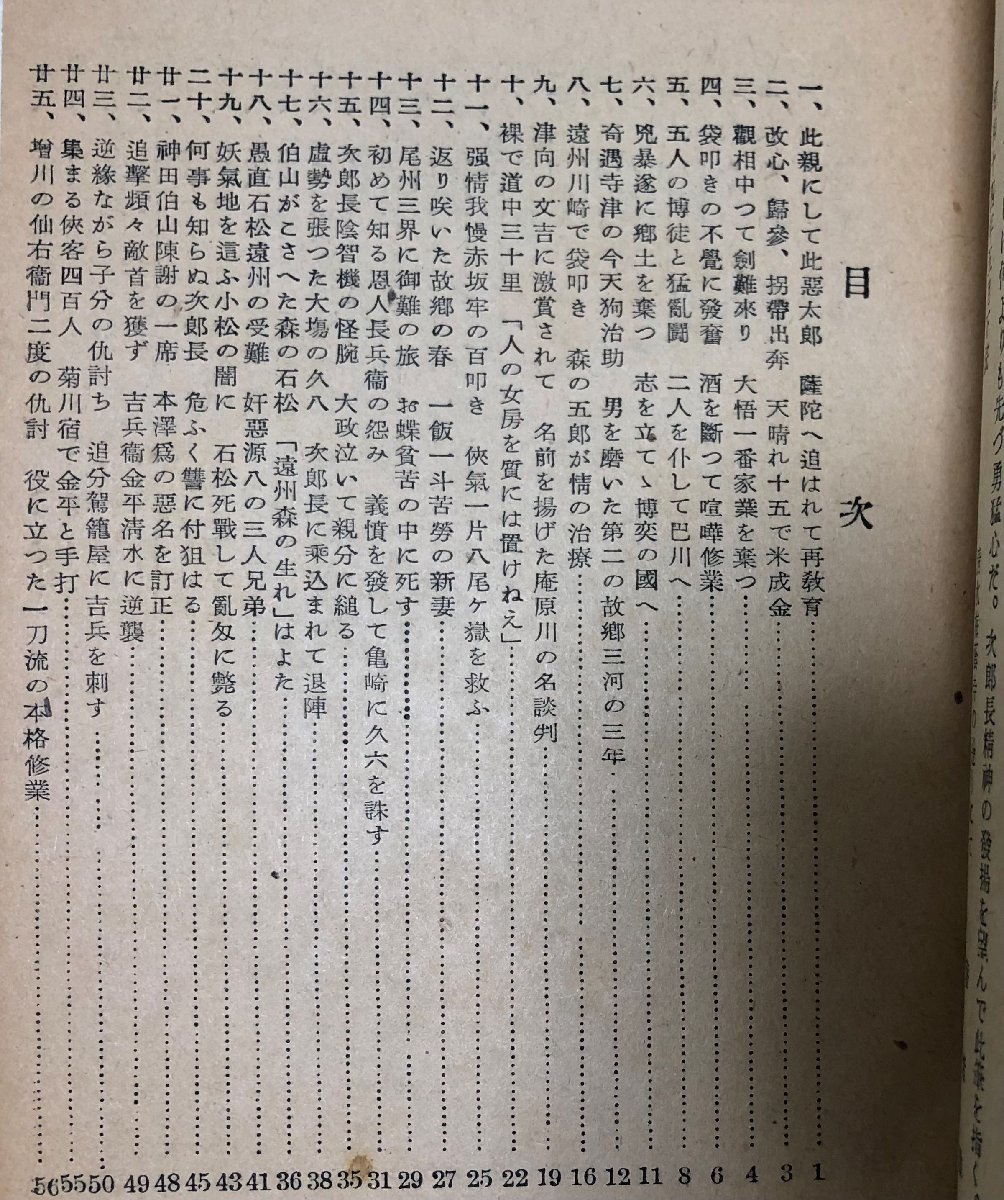 次郎長精神の發揚を望んで此
目次
一、此親にして此惡太郎 薩陀へ追はれて再敎育 1
二、改心、歸參、拐帶出奔 天晴れ十五で米成金 3
三、觀相中つて劍難來り 大悟一番家業を棄つ 4
四、袋叩きの不覺に發奮 酒を斷つて喧嘩修業 6
五、五人の博徒と猛亂鬪 二人を仆して巴川へ 8
六、兇暴遂に鄕土を棄つ 志を立てゝ博奕の國へ 11
七、奇遇寺津の今天狗治助 男を磨いた第二の故鄕三河の三年 12
八、遠州川崎で袋叩き 森の五郎が情の治療 16
九、津向の文吉に激賞されて 名前を揚げた庵原川の名談判 19
十、裸で道中三十里 「人の女房を質には置けねえ」 22
十一、强情我慢赤坂牢の百叩き 俠氣一片八尾ケ嶽を救ふ 25
十二、返り咲いた故鄕の春 一飯一斗苦勞の新妻 27
十三、尾州三界に御難の旅 お蝶貧苦の中に死す 29
十四、初めて知る恩人長兵衞の怨み 義憤を發して亀崎に久六を誅す 31
十五、次郎長陰智機の怪腕 大政泣いて親分に縋る 35
十六、虛勢を張つた大塲の久八 次郎長に乘込まれて退陣 38
十七、伯山がこさへた森の石松 「遠州森の生れ」はよた 36
十八、愚直石松遠州の受難 奸惡源八の三人兄弟 41
十九、妖氣地を這ふ小松の闇に 石松死戰して亂刄に斃る 43
二十、何事も知らぬ次郎長 危ふく讐に付狙はる 45
廿一、神田伯山陳謝の一席 本澤爲の惡名を訂正 48
廿二、追擊頻々敵首を獲ず 吉兵衞金平淸水に逆襲 49
廿三、逆緣ながら子分の仇討ち 追分駕籠屋に吉兵を刺す 50
廿四、集まる俠客四百人 菊川宿で金平と手打 55
廿五、增川の仙右衞門二度の仇討 役に立つた一刀流の本格修業 56